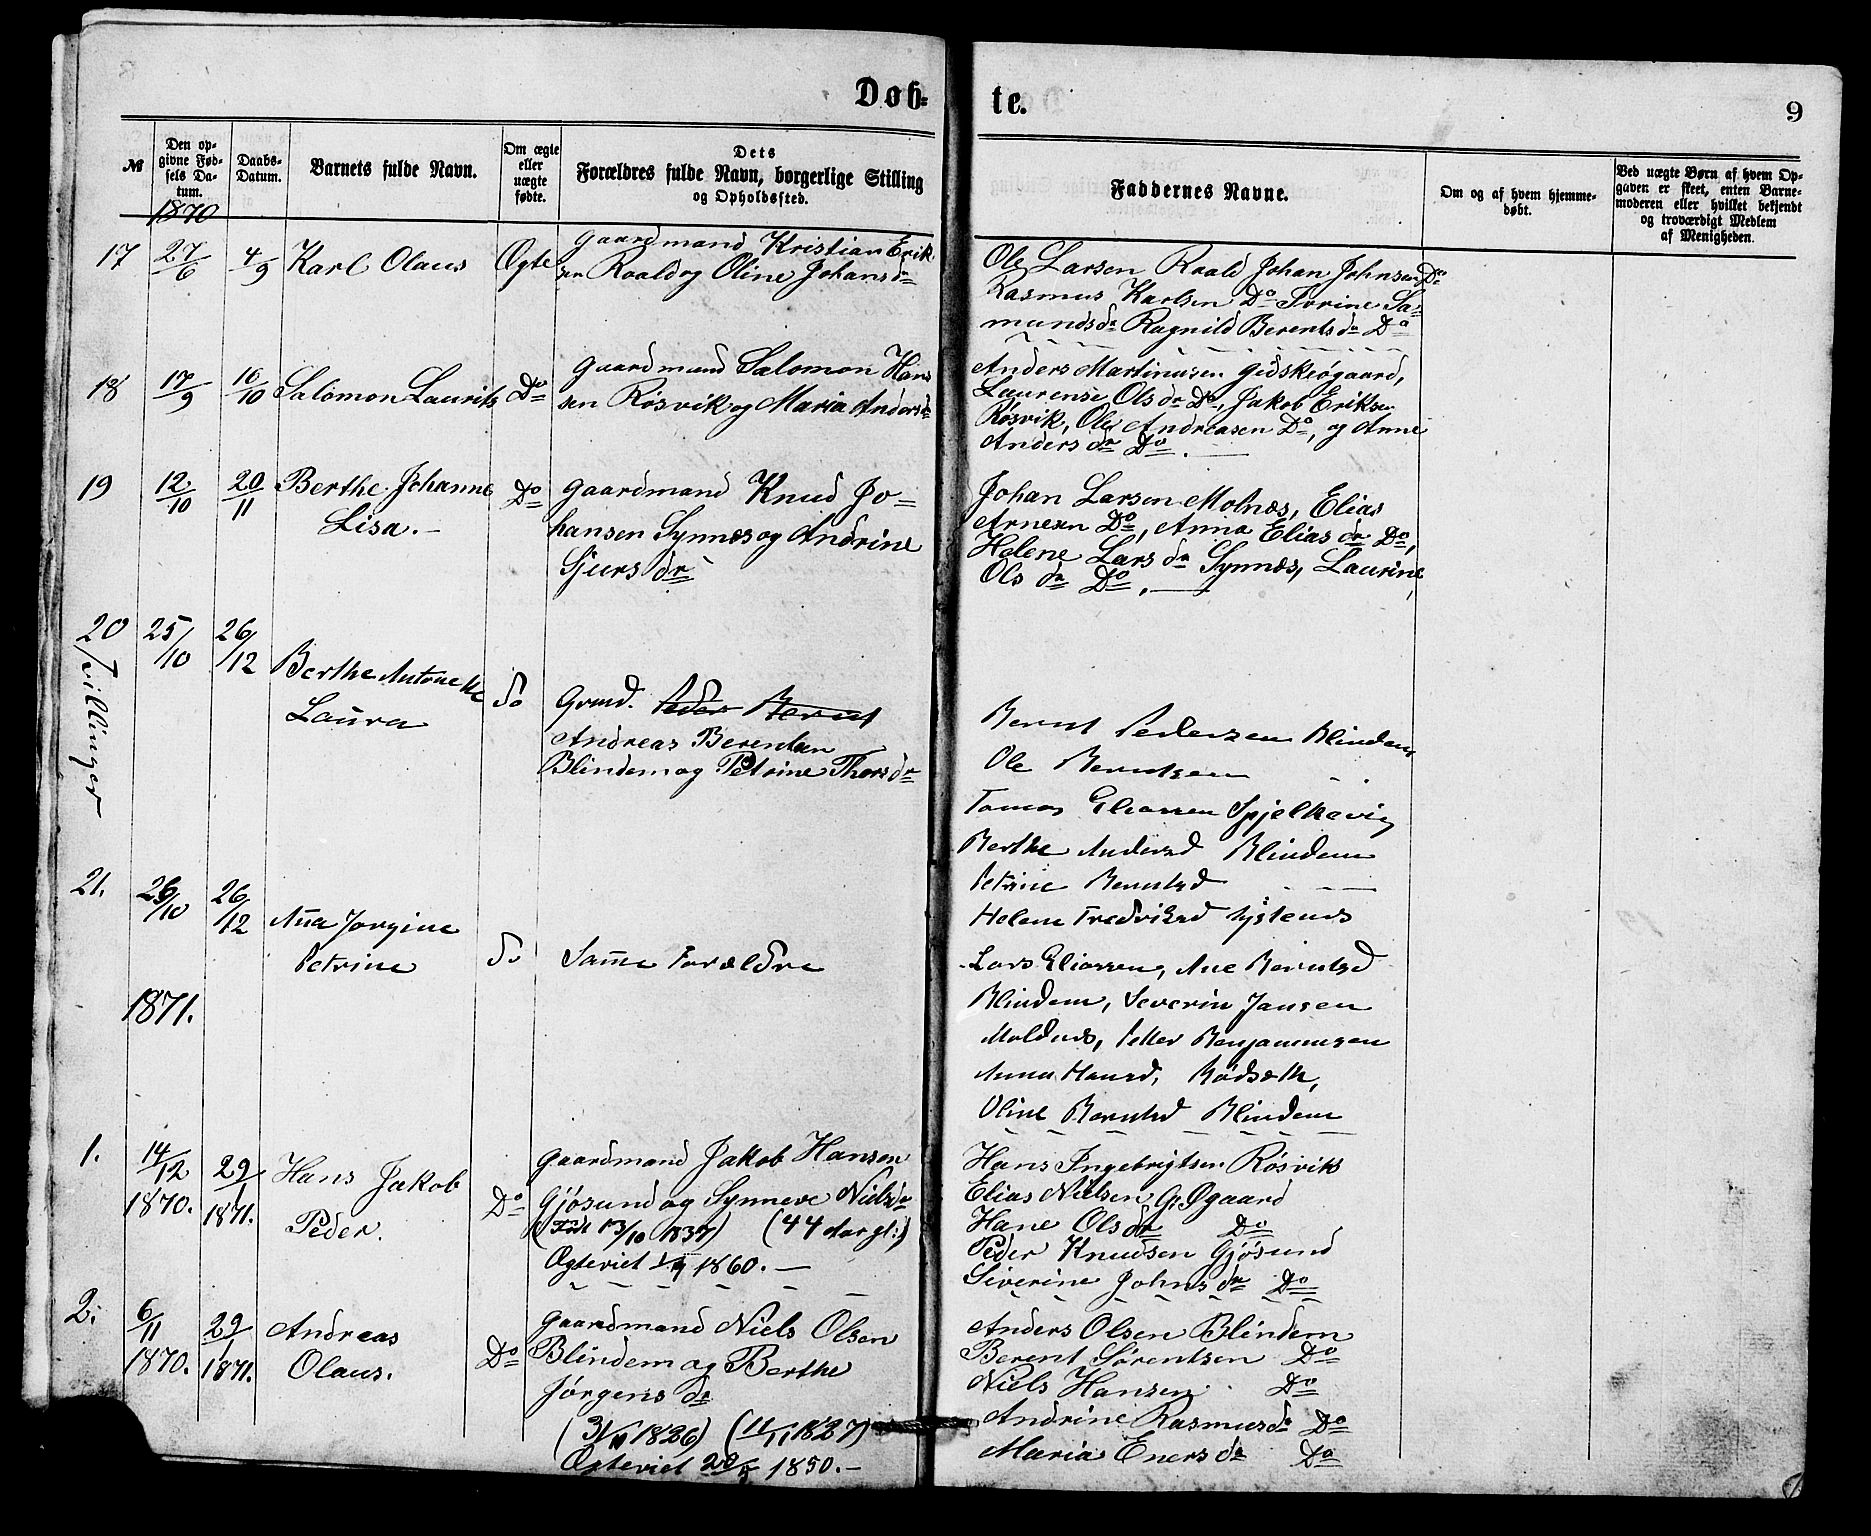 Døb-
te.
9
№
Den op-
givne Fød-
sels Da-
tum.
Daabs-
Datum.
Barnets fulde Navn.
Om ægte
eller
uægte
fødte.
Dets
Forældres fulde Navn, borgerlige Stilling
og Opholdssted.
Faddernes Navne.
Om og af hvem hjemme-
døbt.
Ved uægte Børn af hvem Op-
gaven er skeet, enten Barne-
moderen eller hvilket bekjendt
og troværdigt Medlem
af Menigheden.
1870
17 27/6 4/9 Karl Olaus Ægte Gaardmand Kristian Erik
sen Roald og Oline Johansdr
Ole Larsen Roald Johan Johnsen Do
Rasmus Karlsen Do Sa-
mundsdr Ragnild Berentsdr Do
18 17/9 16/10 Salomon Laurits Do Gaardmand Salomon Han
sen Røsvik og Maria Andersdr
Anders Martinusen Gidskeøgaard,
Laurense Olsdr Do, Jakob Eriksen
Røsvik, Ole Andreasen Do, og Anne
Andersdr Do.
19 12/10 20/11 Berthe Johanne Do Gaardmand Knud Jo-
Lisa.- hansen Synnæs og Andrine
Sjursdr
Johan Larsen Molnæs, Elias
Arnesen Do, Anna Eliasdr Do,
Helene Larsdr Synnæs, Laurine
Olsdr Do.
20 25/10 26/12 Berthe Antonette do Grmd. Peder Bernt
Tvillinger
Laura
Andreas Berentsen
Blindem og Petrine Thorsdr
Bernt Pedersen Blindem
Ole Berntsen
Tomas Eliassen Spjelkavig
Berthe Andersd Blindem
Petrine Berntsd
Helene Fredriksd
21. 26/10 26/12 Ana Jorgine
Petrine do Same Forældre
Lars Eliassen, Ane Berntsd
Blindem, Severin Jansen
Moldnes, Petter Benjaminsen
Anna Hansd, Rødsæth,
Oline Berntsd Blindem
1871.
1. 14/12 1870. 29/1 1871. Hans Jakob
Peder. Do Gaardmand Jakob Hansen
Gjøsund og Synneve Nielsdr
(Født 13/10 1837) (44 Aar gl.)
Ægteviet 1860.
Hans Ingebrigtsen Røsvik
Elias Nielsen G. Øgaard
Hane Olsdr Do
Peder Knudsen Gjøsund
Siverine Johnsdr Do
2. 6/11 1870. 29/1 1871. Andreas
Olaus. Do Gaardmand Niels Olsen
Blindem og Berthe
Jørgensdr
1826) (11/11 1827)
Ægteviet 1850.-
Anders Olsen Blindem
Berent Sørentsen Do
Niels Hansen Do
Andrine Rasmusdr Do
Maria Enersdr Do